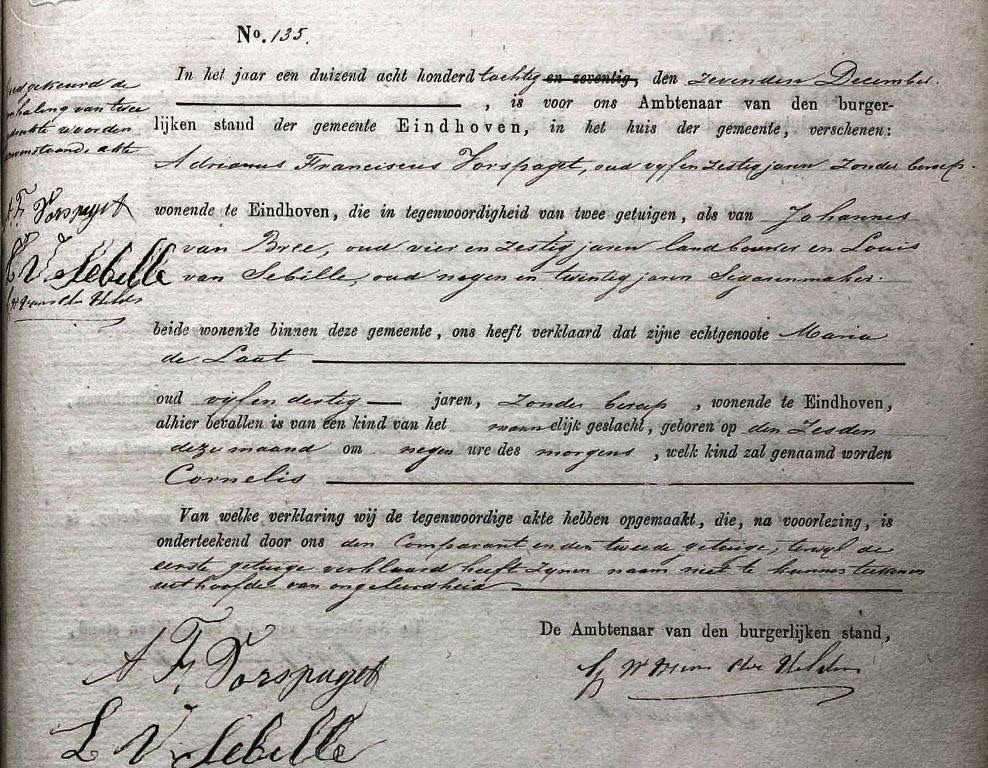 No. 135.
In het jaar een duizend acht honderd tachtig en zeventig, den zevenden December
, is voor ons Ambtenaar van den burger-
lijken stand der gemeente Eindhoven, in het huis der gemeente, verschenen:
Adrianus Franciscus Vorspaget, oud vyf en zestig jaren zonder beroep
wonende te Eindhoven, die in tegenwoordigheid van twee getuigen, als van Johannes
van Bree, oud vier en zestig jaren landbouwer en Louis
van Sebille, oud negen en twintig jaren Sigarenmaker
beide wonende binnen deze gemeente, ons heeft verklaard dat zijne echtgenoote Maria
de Laat
oud vyf en dertig jaren, zonder beroep, wonende te Eindhoven,
alhier bevallen is van een kind van het mannelijk geslacht, geboren op den zesden
dezer maand om negen ure des morgens, welk kind zal genaamd worden
Cornelis
Van welke verklaring wij de tegenwoordige akte hebben opgemaakt, die, na vooorlezing, is
onderteekend door ons den Comparant en den tweede getuige, terwyl de
eerste getuige verklaard heeft zynen naam niet te kunnen teekenen
uit hoofde van ongeleerdheid
De Ambtenaar van den burgerlijken stand,
A F Vorspaget
L V Sebille
goedgekeurd de
doorhaling van twee
gedrukte woorden
bovenstaande akte
A F Vorspaget
L V Sebille